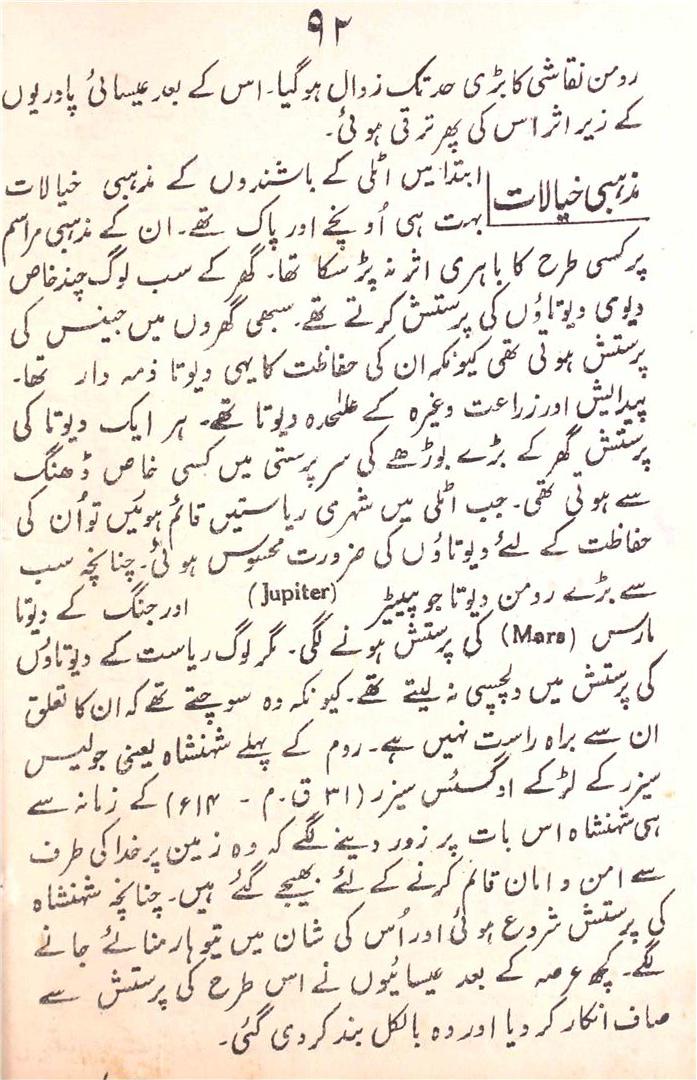 ۹۲
رومن نقاشی کا بڑی حد تک زوال ہو گیا۔ اس کے بعد عیسائی پادریوں
کے زیر اثر اس کی پھر ترقی ہوئی۔
مذہبی خیالات
ابتدا میں اٹلی کے باشندوں کے مذہبی خیالات
بہت ہی اُونچے اور پاک تھے۔ ان کے مذہبی مراسم
پر کسی طرح کا باہری اثر نہ پڑ سکا تھا۔ گھر کے سب لوگ چند خاص
دیوی دیوتاؤں کی پرستش کرتے تھے۔ سبھی گھروں میں جینس کی
پرستش ہوتی تھی کیونکہ ان کی حفاظت کا یہی دیوتا ذمہ دار تھا۔
پیدایش اور زراعت وغیرہ کے علٰحدہ دیوتا تھے۔ ہر ایک دیوتا کی
پرستش گھر کے بڑے بوڑھے کی سرپرستی میں کسی خاص ڈھنگ
سے ہوتی تھی۔ جب اٹلی میں شہری ریاستیں قائم ہوئیں تو اُن کی
حفاظت کے لئے دیوتاؤں کی ضرورت محسوس ہوئی۔ چنانچہ سب
سے بڑے رومن دیوتا جوپیٹر (Jupiter) اور جنگ کے دیوتا
مارس (Mars) کی پرستش ہونے لگی۔ مگر لوگ ریاست کے دیوتاؤں
کی پرستش میں دلچسپی نہ لیتے تھے۔ کیونکہ وہ سوچتے تھے کہ ان کا تعلق
ان سے براہ راست نہیں ہے۔ روم کے پہلے شہنشاہ یعنی جولیس
سیزر کے لڑکے اوگسٹس سیزر (۳۱ ق۔م - ۱۴ء) کے زمانہ سے
ہی شہنشاہ اس بات پر زور دینے لگے کہ وہ زمین پر خدا کی طرف
سے امن و امان قائم کرنے کے لئے بھیجے گئے ہیں۔ چنانچہ شہنشاہ
کی پرستش شروع ہوئی اور اُس کی شان میں تیوہار منائے جانے
لگے۔ کچھ عرصہ کے بعد عیسائیوں نے اس طرح کی پرستش سے
صاف انکار کر دیا اور وہ بالکل بند کر دی گئی۔